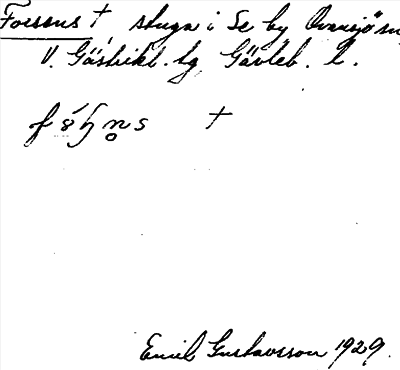 Forsens † stuga i Se by Ovansjö sn
V. Gästrikl. tg Gävleb. l.
†
Emil Gustavsson 1929.